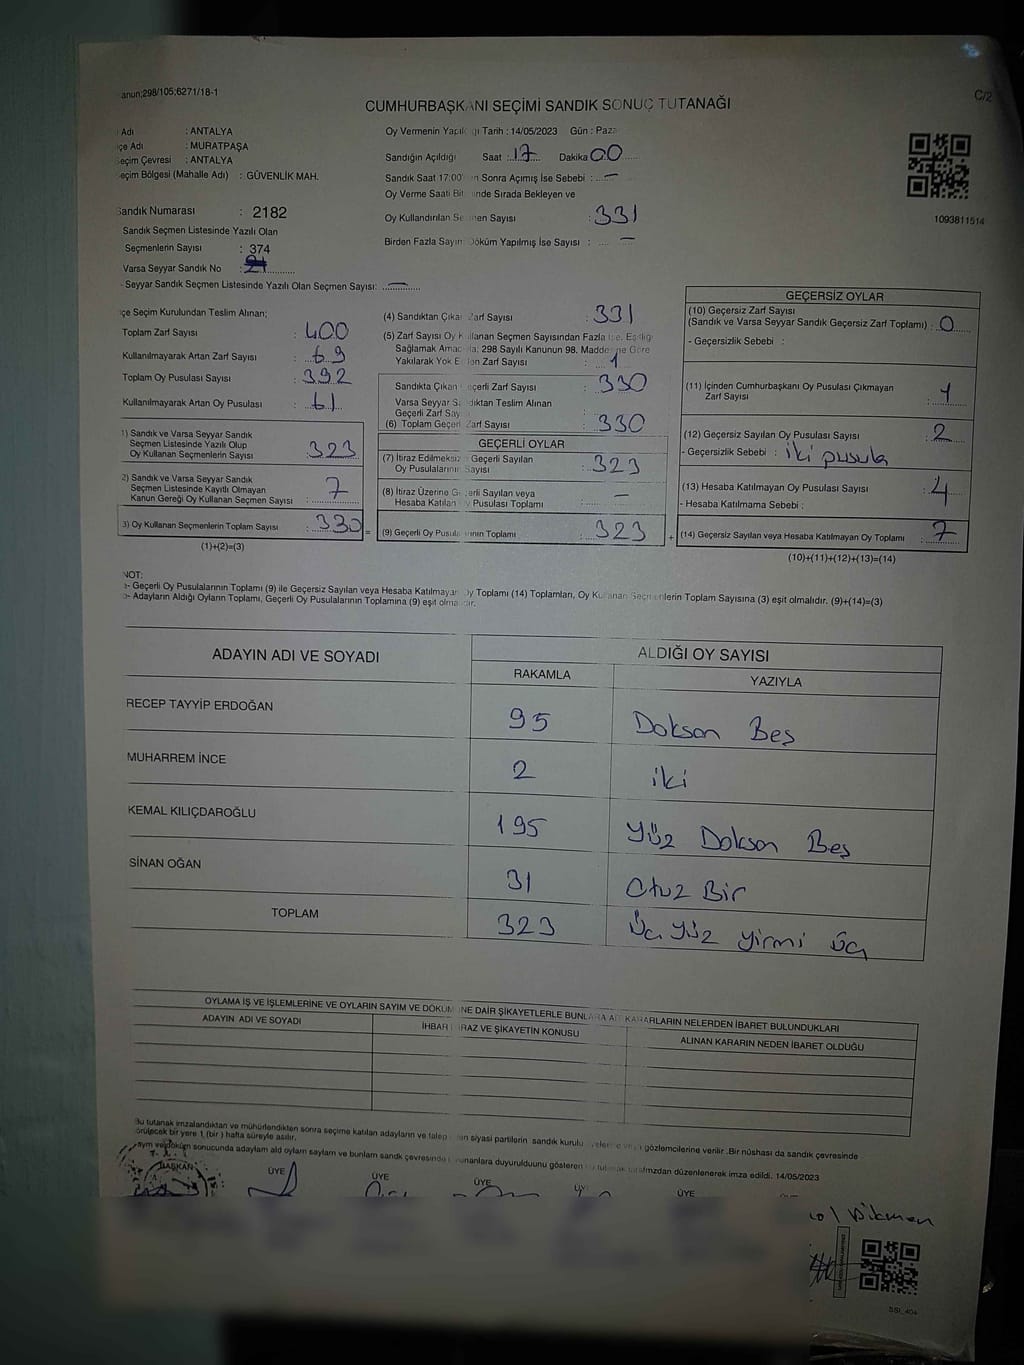 anun;298/105;6271/18-1
C/2
CUMHURBAŞKANI SEÇİMİ SANDIK SONUÇ TUTANAĞI
Adı : ANTALYA
çe Adı : MURATPAŞA
eçim Çevresi : ANTALYA
eçim Bölgesi (Mahalle Adı) : GÜVENLİK MAH.
Sandık Numarası : 2182
Sandık Seçmen Listesinde Yazılı Olan
Seçmenlerin Sayısı : 374
Varsa Seyyar Sandık No :
- Seyyar Sandık Seçmen Listesinde Yazılı Olan Seçmen Sayısı: —
Oy Vermenin Yapıl gı Tarih : 14/05/2023 Gün : Paza
Sandığın Açıldığı Saat : 17 Dakika 00
Sandık Saat 17:00' n Sonra Açımış İse Sebebi : —
Oy Verme Saati Bit inde Sırada Bekleyen ve
Oy Kullandırılan Se men Sayısı : 331
Birden Fazla Sayın Döküm Yapılmış İse Sayısı : —
1093811514
çe Seçim Kurulundan Teslim Alınan;
Toplam Zarf Sayısı : 400
Kullanılmayarak Artan Zarf Sayısı : 69
Toplam Oy Pusulası Sayısı : 392
Kullanılmayarak Artan Oy Pusulası : 61
1) Sandık ve Varsa Seyyar Sandık
Seçmen Listesinde Yazılı Olup
Oy Kullanan Seçmenlerin Sayısı : 323
2) Sandık ve Varsa Seyyar Sandık
Seçmen Listesinde Kayıtlı Olmayan
Kanun Gereği Oy Kullanan Seçmen Sayısı : 7
3) Oy Kullanan Seçmenlerin Toplam Sayısı : 330 =
(1)+(2)=(3)
(4) Sandıktan Çıkan Zarf Sayısı : 331
(5) Zarf Sayısı Oy K llanan Seçmen Sayısından Fazla İse, Eşitliği
Sağlamak Amac la; 298 Sayılı Kanunun 98. Maddesine Göre
Yakılarak Yok E len Zarf Sayısı : 1
Sandıkta Çıkan eçerli Zarf Sayısı : 330
Varsa Seyyar S dıktan Teslim Alınan
Geçerli Zarf Say
(6) Toplam Geçer Zarf Sayısı : 330
GEÇERLİ OYLAR
(7) İtiraz Edilmeksiz Geçerli Sayılan
Oy Pusulalarının Sayısı : 323
(8) İtiraz Üzerine G erli Sayılan veya
Hesaba Katılan y Pusulası Toplamı : —
(9) Geçerli Oy Pusula ının Toplamı : 323 +
GEÇERSİZ OYLAR
(10) Geçersiz Zarf Sayısı
(Sandık ve Varsa Seyyar Sandık Geçersiz Zarf Toplamı) : 0
- Geçersizlik Sebebi :
(11) İçinden Cumhurbaşkanı Oy Pusulası Çıkmayan
Zarf Sayısı : 1
(12) Geçersiz Sayılan Oy Pusulası Sayısı : 2
- Geçersizlik Sebebi : iki pusula
(13) Hesaba Katılmayan Oy Pusulası Sayısı : 4
- Hesaba Katılmama Sebebi :
(14) Geçersiz Sayılan veya Hesaba Katılmayan Oy Toplamı : 7
(10)+(11)+(12)+(13)=(14)
NOT:
a- Geçerli Oy Pusulalarının Toplamı (9) ile Geçersiz Sayılan veya Hesaba Katılmayan Oy Toplamı (14) Toplamları, Oy Kullanan Seçmenlerin Toplam Sayısına (3) eşit olmalıdır. (9)+(14)=(3)
b- Adayların Aldığı Oyların Toplamı, Geçerli Oy Pusulalarının Toplamına (9) eşit olmalıdır.
ADAYIN ADI VE SOYADI ALDIĞI OY SAYISI
RAKAMLA YAZIYLA
RECEP TAYYİP ERDOĞAN 95 Doksan Beş
MUHARREM İNCE 2 iki
KEMAL KILIÇDAROĞLU 195 Yüz Doksan Beş
SİNAN OĞAN 31 Otuz Bir
TOPLAM 323 Üç Yüz yirmi üç
OYLAMA İŞ VE İŞLEMLERİNE VE OYLARIN SAYIM VE DÖKÜMÜNE DAİR ŞİKAYETLERLE BUNLARA AİT KARARLARIN NELERDEN İBARET BULUNDUKLARI
ADAYIN ADI VE SOYADI İHBAR İ RAZ VE ŞİKAYETİN KONUSU ALINAN KARARIN NEDEN İBARET OLDUĞU
Bu tutanak imzalandıktan ve mühürlendikten sonra seçime katılan adayların ve talep den siyasi partilerin sandık kurulu üyelerine veya gözlemcilerine verilir. Bir nüshası da sandık çevresinde
örülecek bir yere 1 (bir ) hafta süreyle asılır.
ayım ve döküm sonucunda adayların aldığı oyların sayıları ve bunların sandık çevresinde bulunanlara duyurulduğunu gösteren bu tutanak tarafımızdan düzenlenerek imza edildi. 14/05/2023
BAŞKAN ÜYE ÜYE ÜYE ÜYE ÜYE
Dikmen
SSİ_404